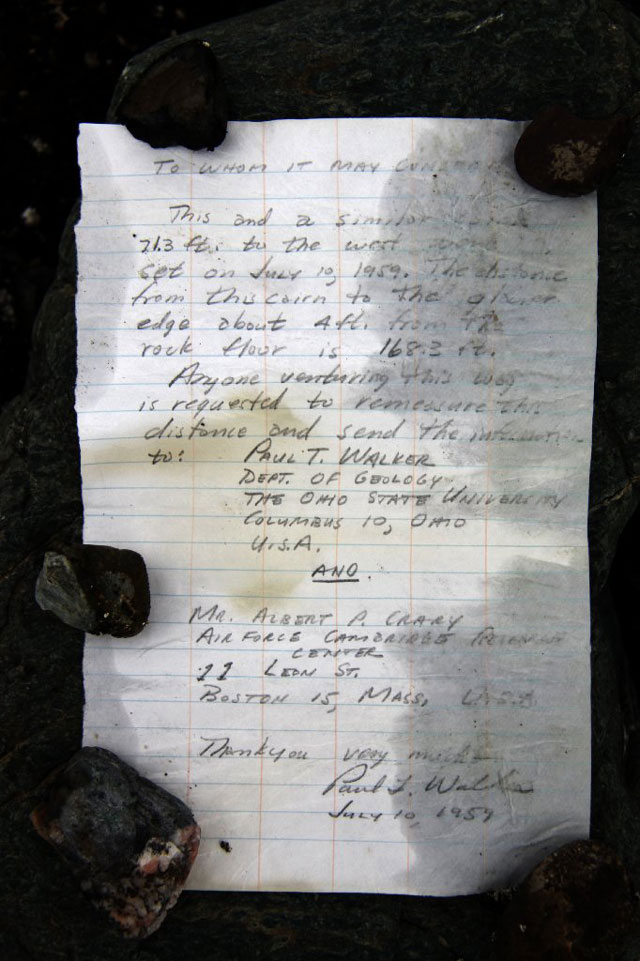 TO WHOM IT MAY CONCERN
This and a similar cairn
21.3 ft. to the west were
set on July 10, 1959. The distance
from this cairn to the glacier
edge about 4 ft. from the
rock floor is 168.3 ft.
Anyone venturing this way
is requested to remeasure this
distance and send the information
to: PAUL T. WALKER
DEPT. OF GEOLOGY
THE OHIO STATE UNIVERSITY
COLUMBUS 10, OHIO
U.S.A.
AND.
MR. ALBERT P. CRARY
AIR FORCE CAMBRIDGE RESEARCH
CENTER
11 LEON ST.
BOSTON 15, MASS. U.S.A.
Thankyou very much
Paul T. Walker
JULY 10, 1959